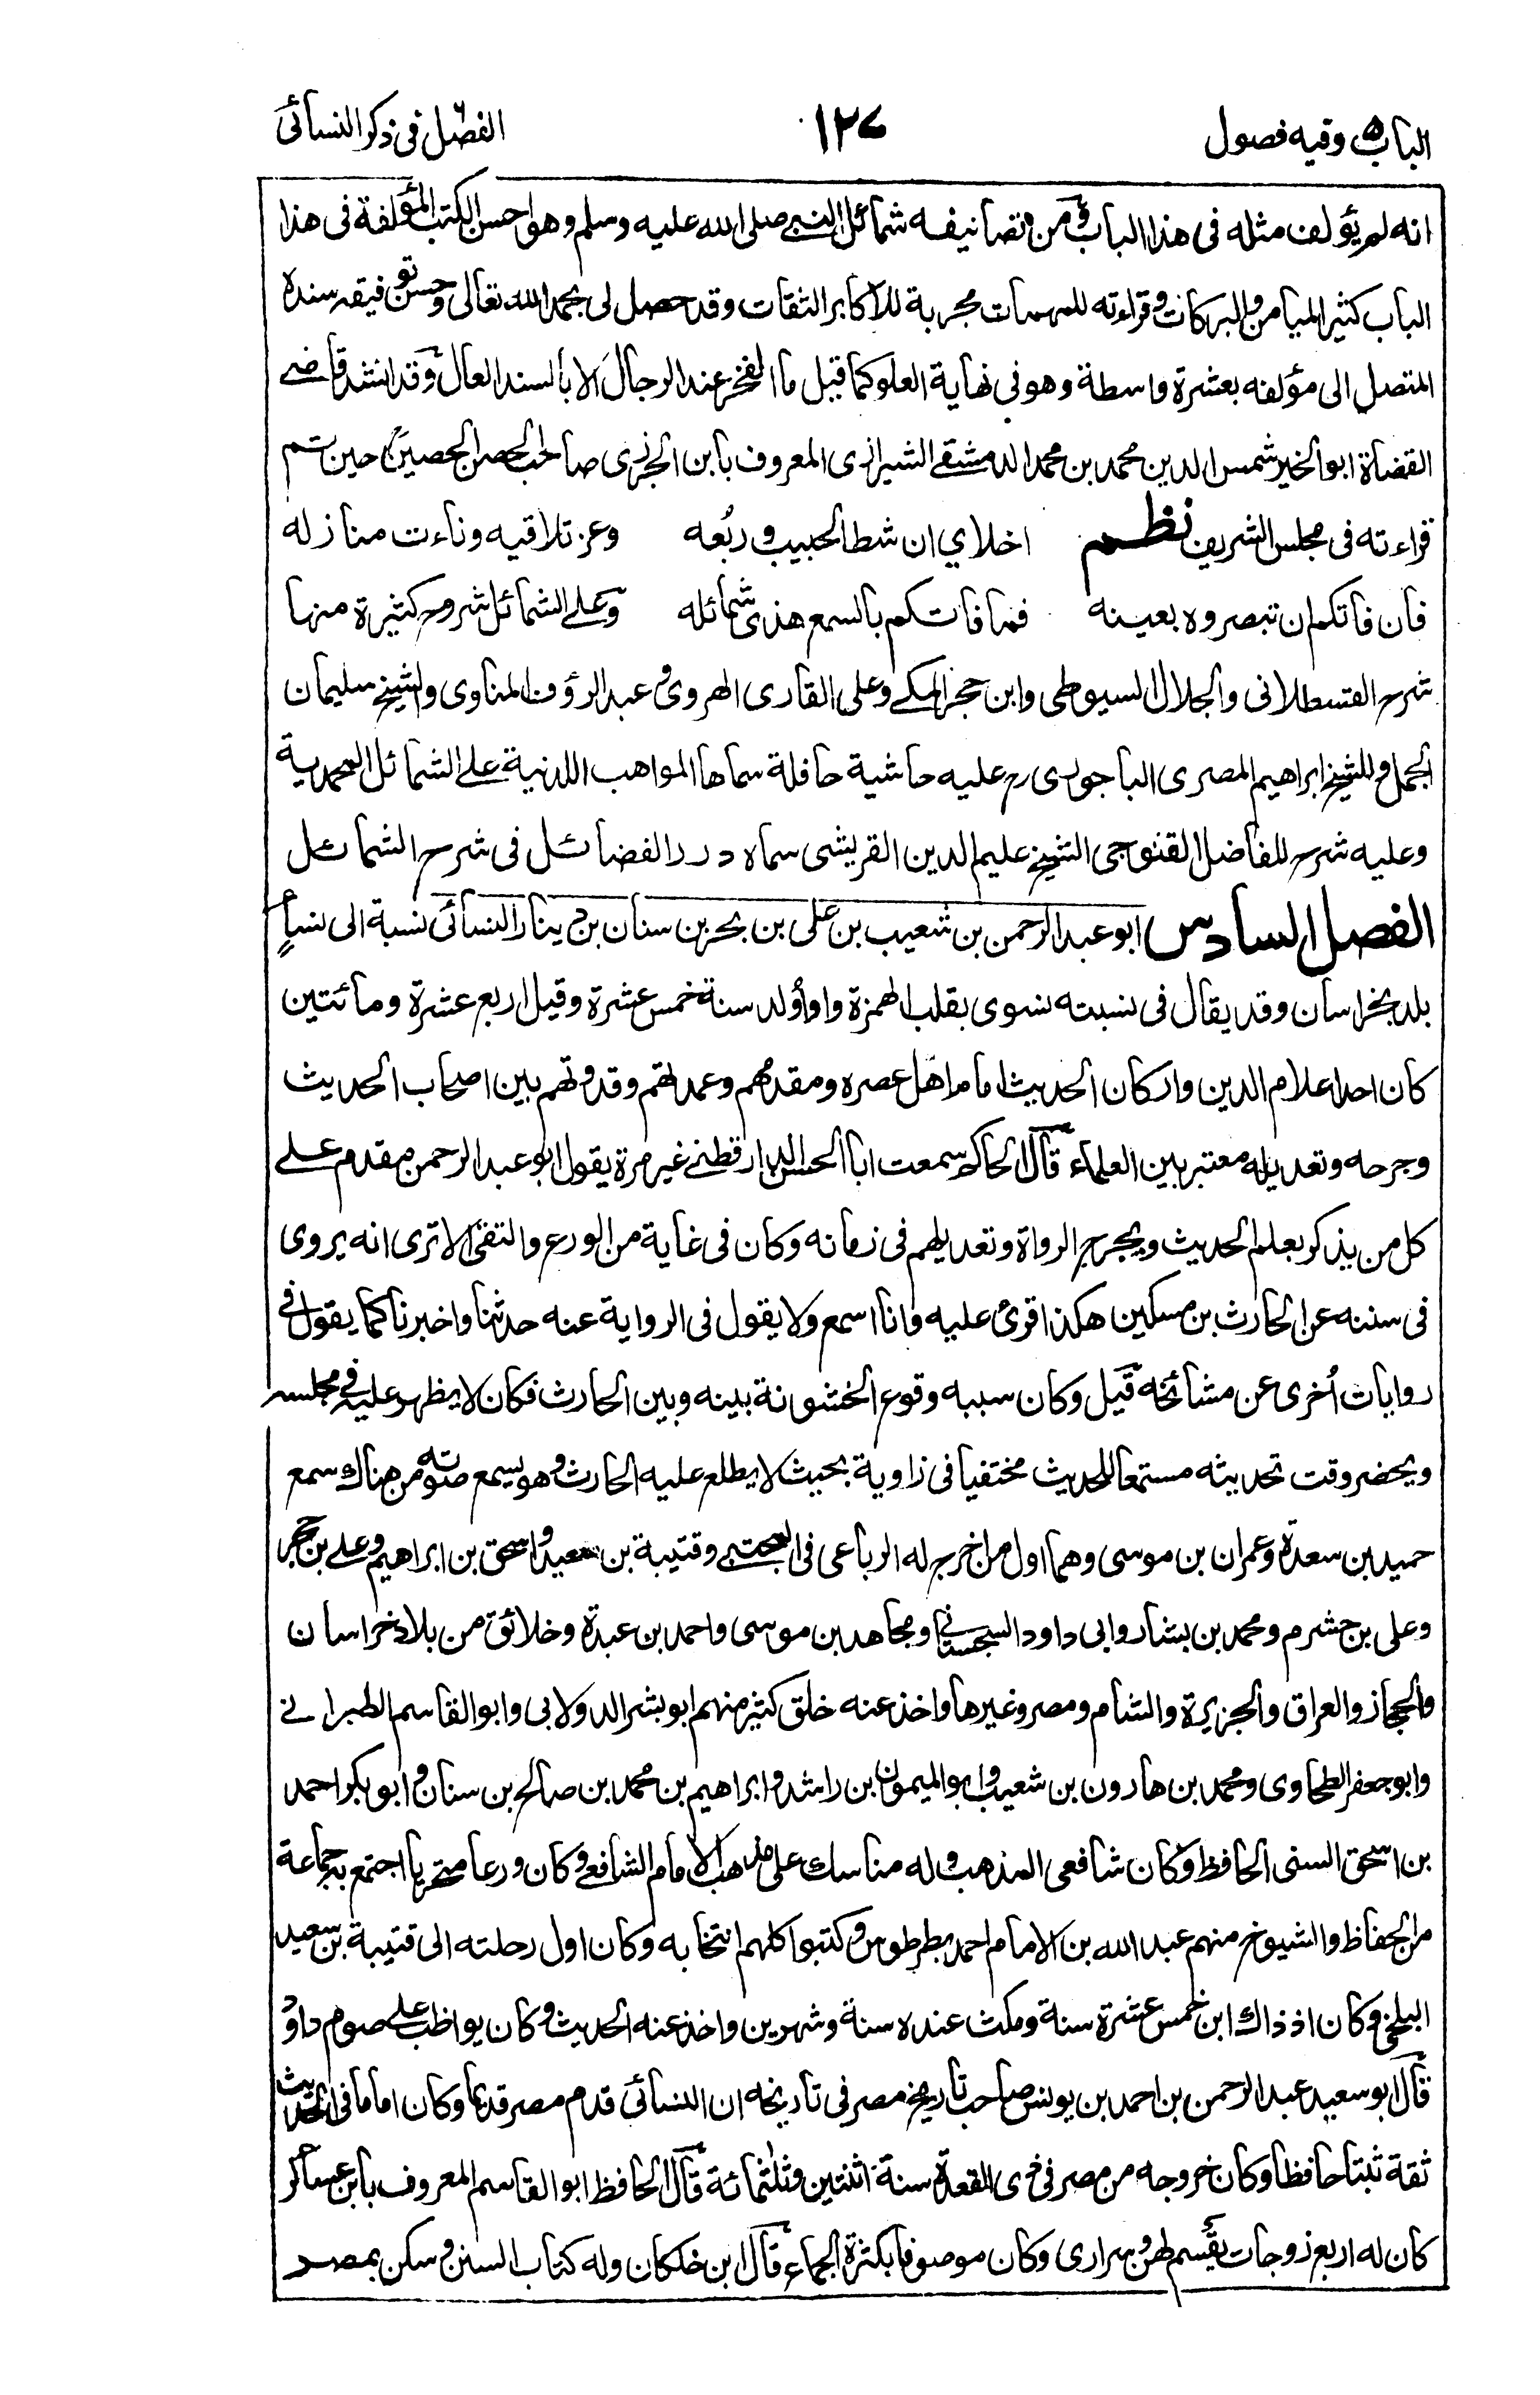 الباب ۵ وفيه فصول
١٢٧
الفصل ٦ في ذكر النسائي
انه لم يؤلف مثله في هذا الباب ومن تصانيفه شمائل النبي صلى الله عليه وسلم وهو احسن الكتب المؤلفة في هذا
الباب كثير الميامن والبركات وقراءته للمهمات مجربة للاكابر الثقات وقد حصل لي بحمد الله تعالى وحسن توفيقه سنده
المتصل الى مؤلفه بعشرة واسطة وهو في نهاية العلو كما قيل ما الفخر عند الرجال الا بالسند العال وقد انشد قاضي
القضاة ابو الخير شمس الدين محمد بن محمد الدمشقي الشيرازي المعروف بابن الجزري صاحب الحصن الحصين حين ستم
قراءته في مجلس الشريف نظم اخلاي ان شط الحبيب وربعه وعز تلاقيه وناءت منازله
فان فاتكم ان تبصروه بعينه فما فاتكم بالسمع هذي شمائله وعلى الشمائل شروح كثيرة منها
شرح القسطلاني والجلال السيوطي وابن حجر المكي وعلي القاري الهروي وعبد الرؤف المناوي والشيخ سليمان
الجمل وللشيخ ابراهيم المصري الباجوري رح عليه حاشية حافلة سماها المواهب اللدنية على الشمائل المحمدية
وعليه شرح للفاضل القنوجي الشيخ عليم الدين القريشي سماه درر الفضائل في شرح الشمائل
الفصل السادس ابو عبد الرحمن بن شعيب بن علي بن بحر بن سنان بن دينار النسائي نسبة الى نساء
بلد بخراسان وقد يقال في نسبته نسوي بقلب الهمزة واوا ولد سنة خمس عشرة وقيل اربع عشرة ومائتين
كان احد اعلام الدين واركان الحديث امام اهل عصره ومقدمهم وعمدتهم وقدوتهم بين اصحاب الحديث
وجرحه وتعديله معتبر بين العلماء قال الحاكم سمعت ابا الحسن الدارقطني غير مرة يقول ابو عبد الرحمن مقدم على
كل من يذكر بعلم الحديث وبجرح الرواة وتعديلهم في زمانه وكان في غاية من الورع والتقى الا ترى انه يروي
في سننه عن الحارث بن مسكين هكذا اقرئ عليه وانا اسمع ولا يقول في الرواية عنه حدثنا واخبرنا كما يقول في
روايات أخرى عن مشائخه قيل وكان سببه وقوع الخشونة بينه وبين الحارث فكان لا يظهر عليه في مجلسه
ويحضر وقت تحديثه مستمعا للحديث مختفيا في زاوية بحيث لا يطلع عليه الحارث وهو يسمع صوته من هناك سمع
حميد بن سعدة وعمران بن موسى وهما اول من اخرج له الرباعي في المجتبى وقتيبة بن سعيد واسحق بن ابراهيم وعلي بن حجر
وعلي بن خشرم ومحمد بن بشار وابي داود السجستاني ومجاهد بن موسى واحمد بن عبدة وخلائق من بلاد خراسان
والحجاز والعراق والجزيرة والشام ومصر وغيرها واخذ عنه خلق كثير منهم ابو بشر الدولابي وابو القاسم الطبراني
وابو جعفر الطحاوي ومحمد بن هارون بن شعيب وابو الميمون بن راشد وابراهيم بن محمد بن صالح بن سنان وابو بكر احمد
بن اسحق السني الحافظ وكان شافعي المذهب وله مناسك على مذهب الامام الشافعي وكان ورعا متحريا اجتمع به جماعة
من الحفاظ والشيوخ منهم عبد الله بن الامام احمد بطرطوس وكتبوا كلهم انتخابه وكان اول رحلته الى قتيبة بن سعيد
البلخي وكان اذ ذاك ابن خمس عشرة سنة ومكث عنده سنة وشهرين واخذ عنه الحديث وكان يواظب على صوم داؤد
قال ابو سعيد عبد الرحمن بن احمد بن يونس صاحب تاريخ مصر في تاريخه ان النسائي قدم مصر قديما وكان اماما في الحديث
ثقة ثبتا حافظا وكان خروجه من مصر في ذي القعدة سنة اثنتين وثلثمائة قال الحافظ ابو القاسم المعروف بابن عساكر
كان له اربع زوجات يقسم لهن وسراري وكان موصوفا بكثرة الجماع قال ابن خلكان وله كتاب السنن وسكن بمصر